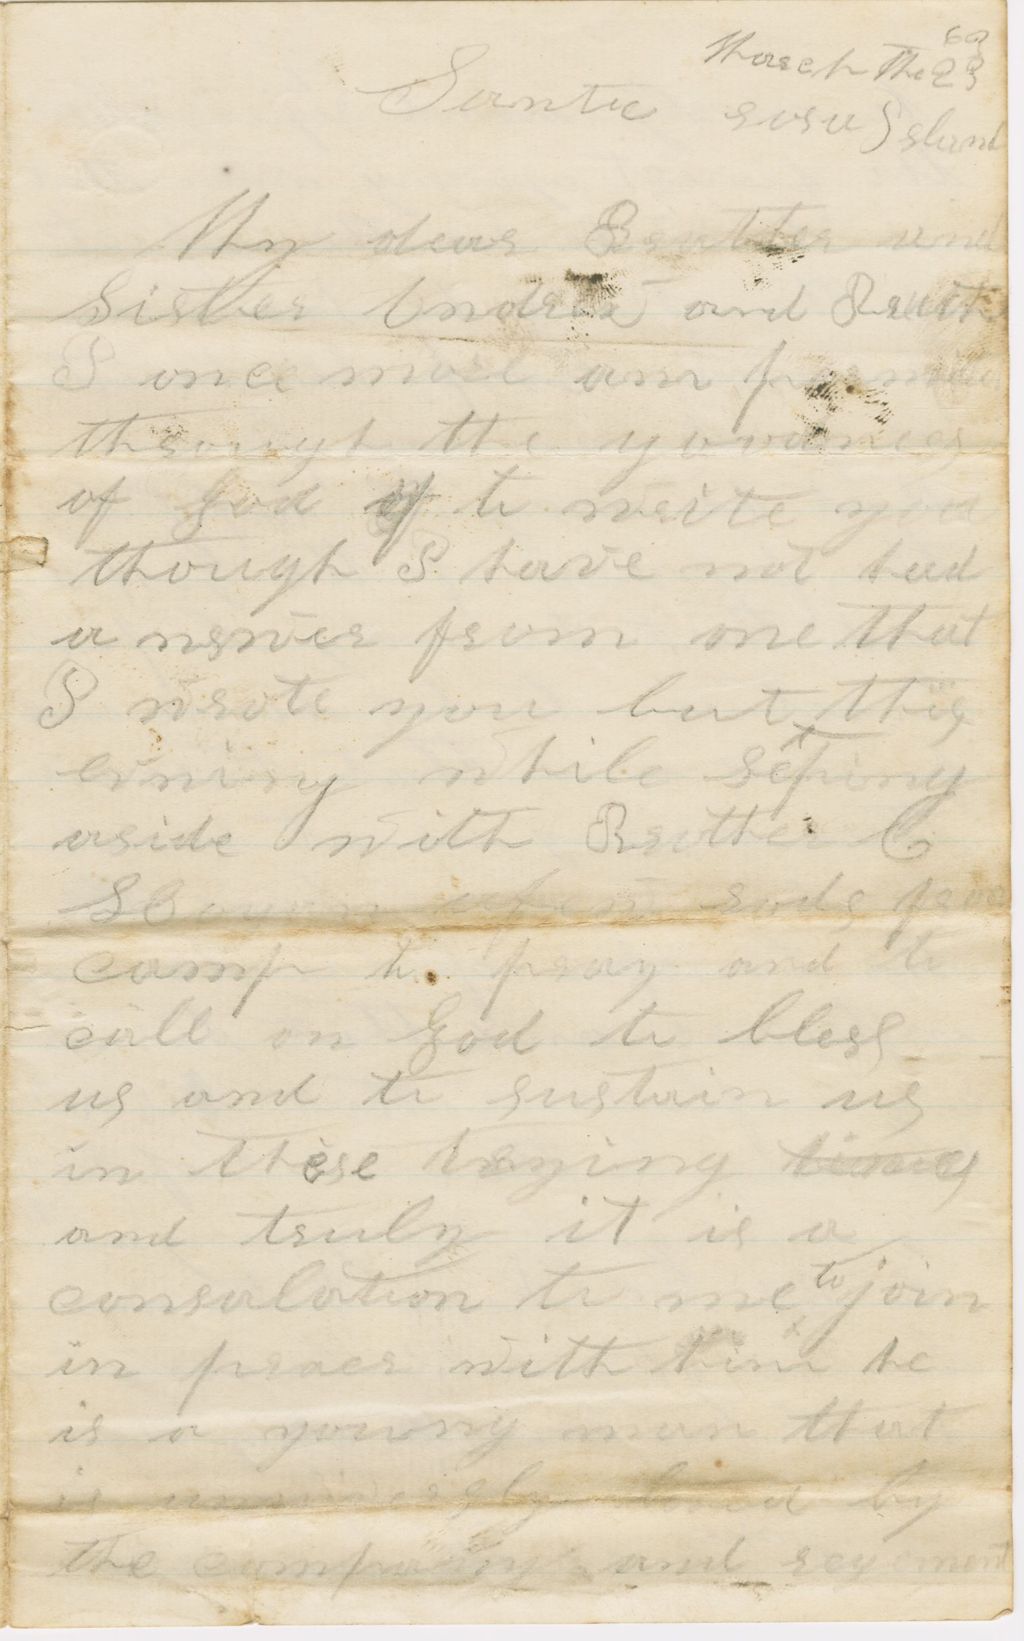 March the 23 63
Santic rosa Island
My dear Brother and
Sister Andrew and Ruth
I once more am permited
through the govornces
of God to write you
though I have not had
a nswer from one that
I wrote you but this
evning while seting
aside with Brother C
S rods from
camp to pray and to
call on God to bless
us and to sustain us
in these trying times
and truly it is a
consolation to me to join
in praer with him he
is a young man that
is univercsly loved by
the company and regement